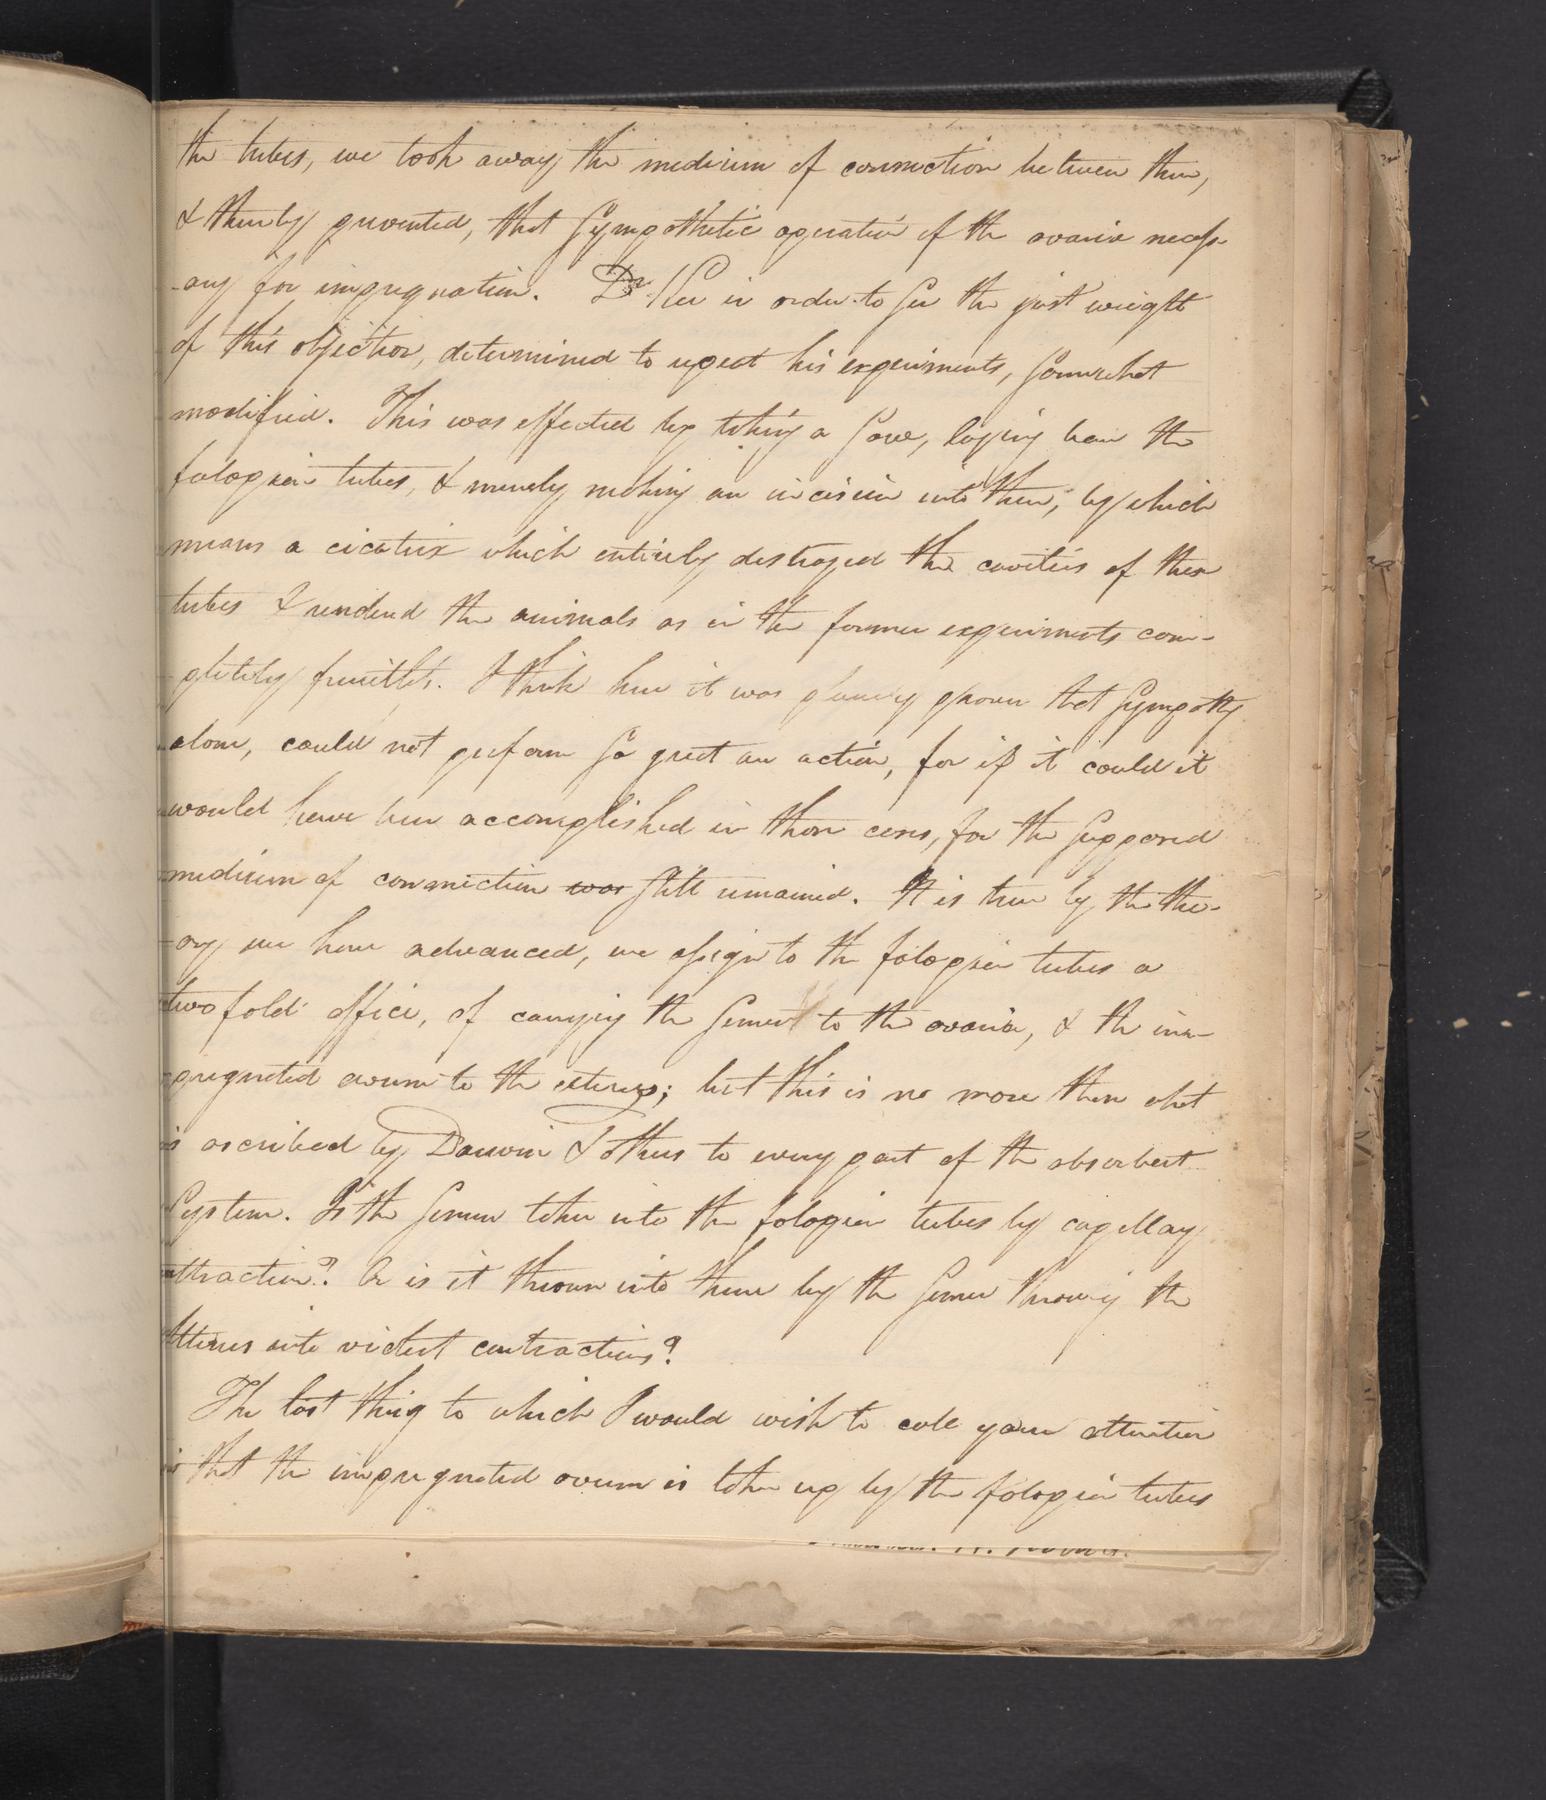 the tubes, we took away the medium of connection between them,
& thereby prevented, that sympathetic operation of the ovaria necess-
-ary for impregnation. Dr. in order to see the just weight
of this objection, determined to repeat his experiments, somewhat
modified. This was effected by taking a sow, laying bare the
falopian tubes, & merely making an incision into them, by which
means a cicatrix which entirely destroyed the cavities of these
tubes & rendered the animals as in the former experiments com-
pletely fruitless. I think here it was plainly proven that sympathy
alone, could not perform so great an action, for if it could it
would have been accomplished in these cases, for the supposed
medium of connection was still remained. It is true by the the-
ory we have advanced, we assign to the falopian tubes a
twofold office, of carrying the semen to the ovaria, & the im-
pregnated ovum to the uterus; but this is no more than what
is ascribed by Darwin & others to every part of the absorbent
system. Is the semen taken into the falopian tubes by capillary
attraction? Or is it thrown into them by the semen throwing the
Uterus into violent contractions?
The last thing to which I would wish to call your attention
is that the impregnated ovum is taken up by the falopian tubes